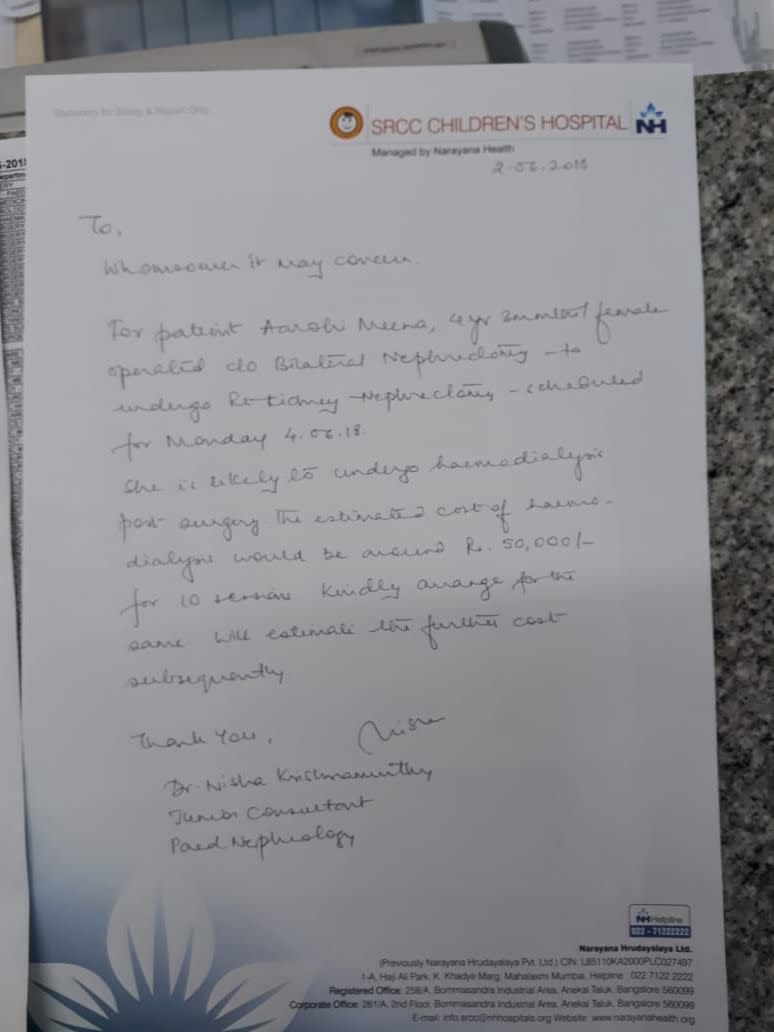 Stationery for Billing & Report Only
SRCC CHILDREN'S HOSPITAL NH
Managed by Narayana Health
2.06.2018
To,
Whomsoever it may concern.
For patient Aarohi Meena, 4yr 3 month female
operated c/o Bilateral Nephrectomy - to
undergo Rt Kidney Nephrectomy - scheduled
for Monday 4.06.18.
She is likely to undergo haemodialysis
post surgery The estimated cost of haemo-
dialysis would be around Rs. 50,000/-
for 10 sessions Kindly arrange for the
same Will estimate the further cost
subsequently
Thank You,
Nisha
Dr. Nisha Krishnamurthy
Junior Consultant
Paed Nephrology
NH Helpline
022 - 71222222
Narayana Hrudayalaya Ltd.
(Previously Narayana Hrudayalaya Pvt. Ltd.) CIN: L85110KA2000PLC027497
1-A, Haji Ali Park, K. Khadye Marg, Mahalaxmi Mumbai, Helpline : 022 7122 2222
Registered Office: 258/A, Bommasandra Industrial Area, Anekal Taluk, Bangalore 560099
Corporate Office: 261/A, 2nd Floor, Bommasandra Industrial Area, Anekal Taluk, Bangalore 560099
E-mail: info.srcc@nhhospitals.org Website: www.narayanahealth.org